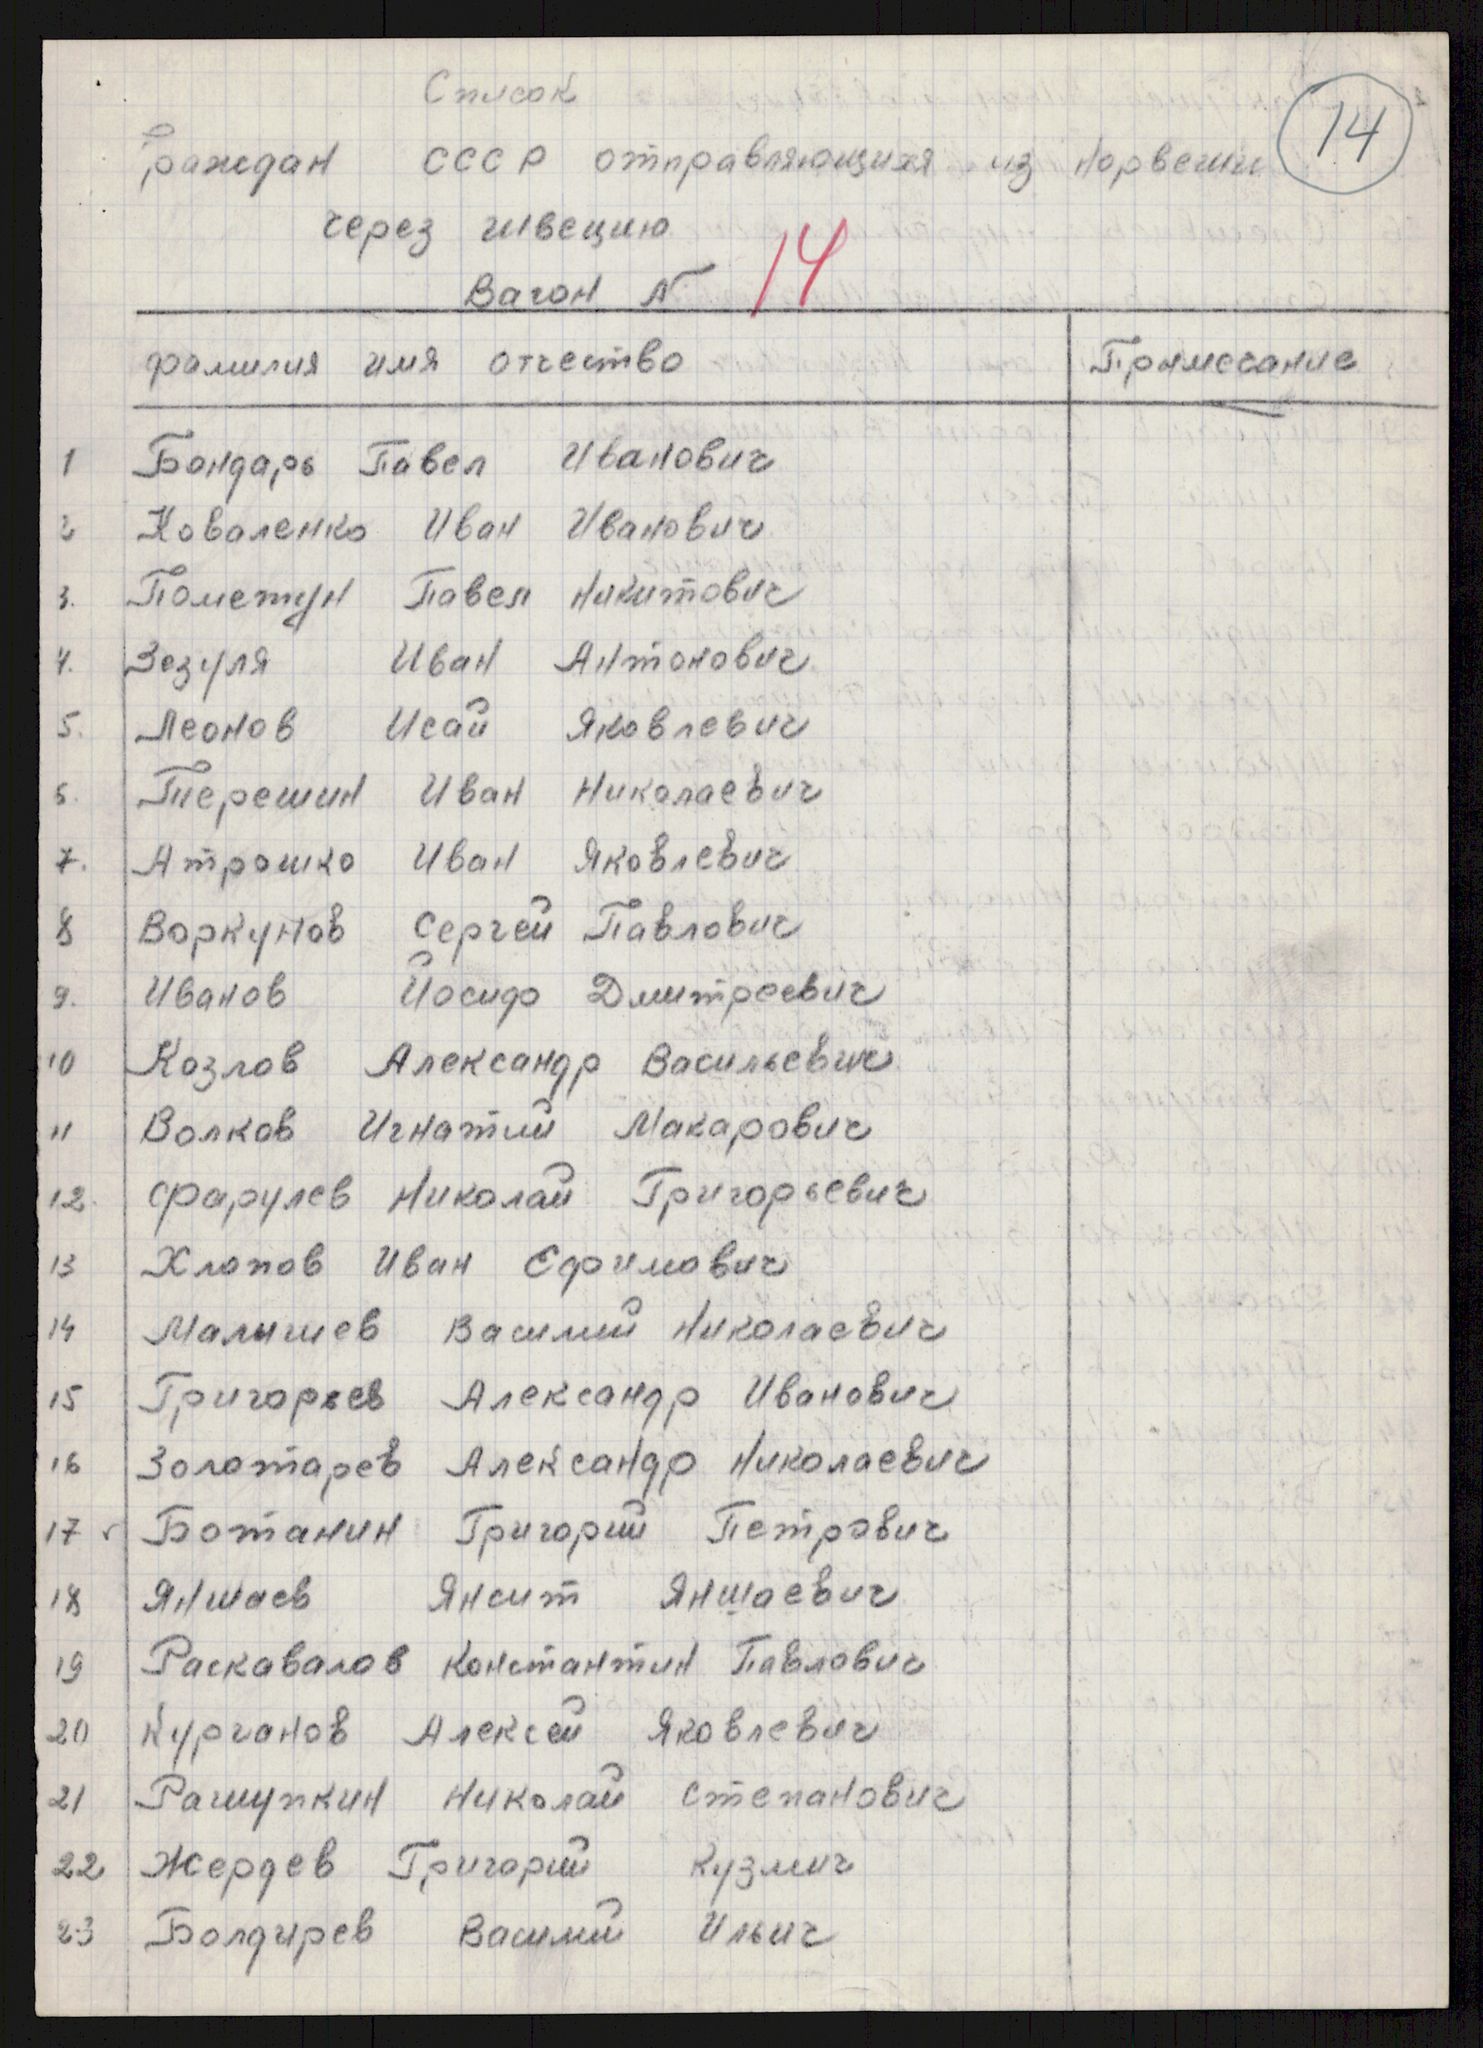 Список
14
Граждан СССР отправляющихя из Норвегии
через швецию
Вагон N 14
фамилия имя отчество Примечание
1 Бондарь Павел Иванович
2 Коваленко Иван Иванович
3. Пометун Павел Никитович
4. Зезуля Иван Антонович
5. Леонов Исай Яковлевич
6. Терешин Иван Николаевич
7. Атрошко Иван Яковлевич
8 Воркунов Сергей Павлович
9. Иванов Йосиф Дмитреевич
10 Козлов Александр Васильевич
11 Волков Игнатий Макарович
12. Фарулев Николай Григорьевич
13 Хлопов Иван Ефимович
14 Малышев Василий Николаевич
15 Григорьев Александр Иванович
16 Золотарев Александр Николаевич
17 Ботанин Григорий Петрович
18 Яншаев Янсит Яншаевич
19 Раскавалов Константин Павлович
20 Курганов Алексей Яковлевич
21 Рашупкин Николай Степанович
22 Жердев Григорий Кузмич
23 Болдырев Василий Ильич